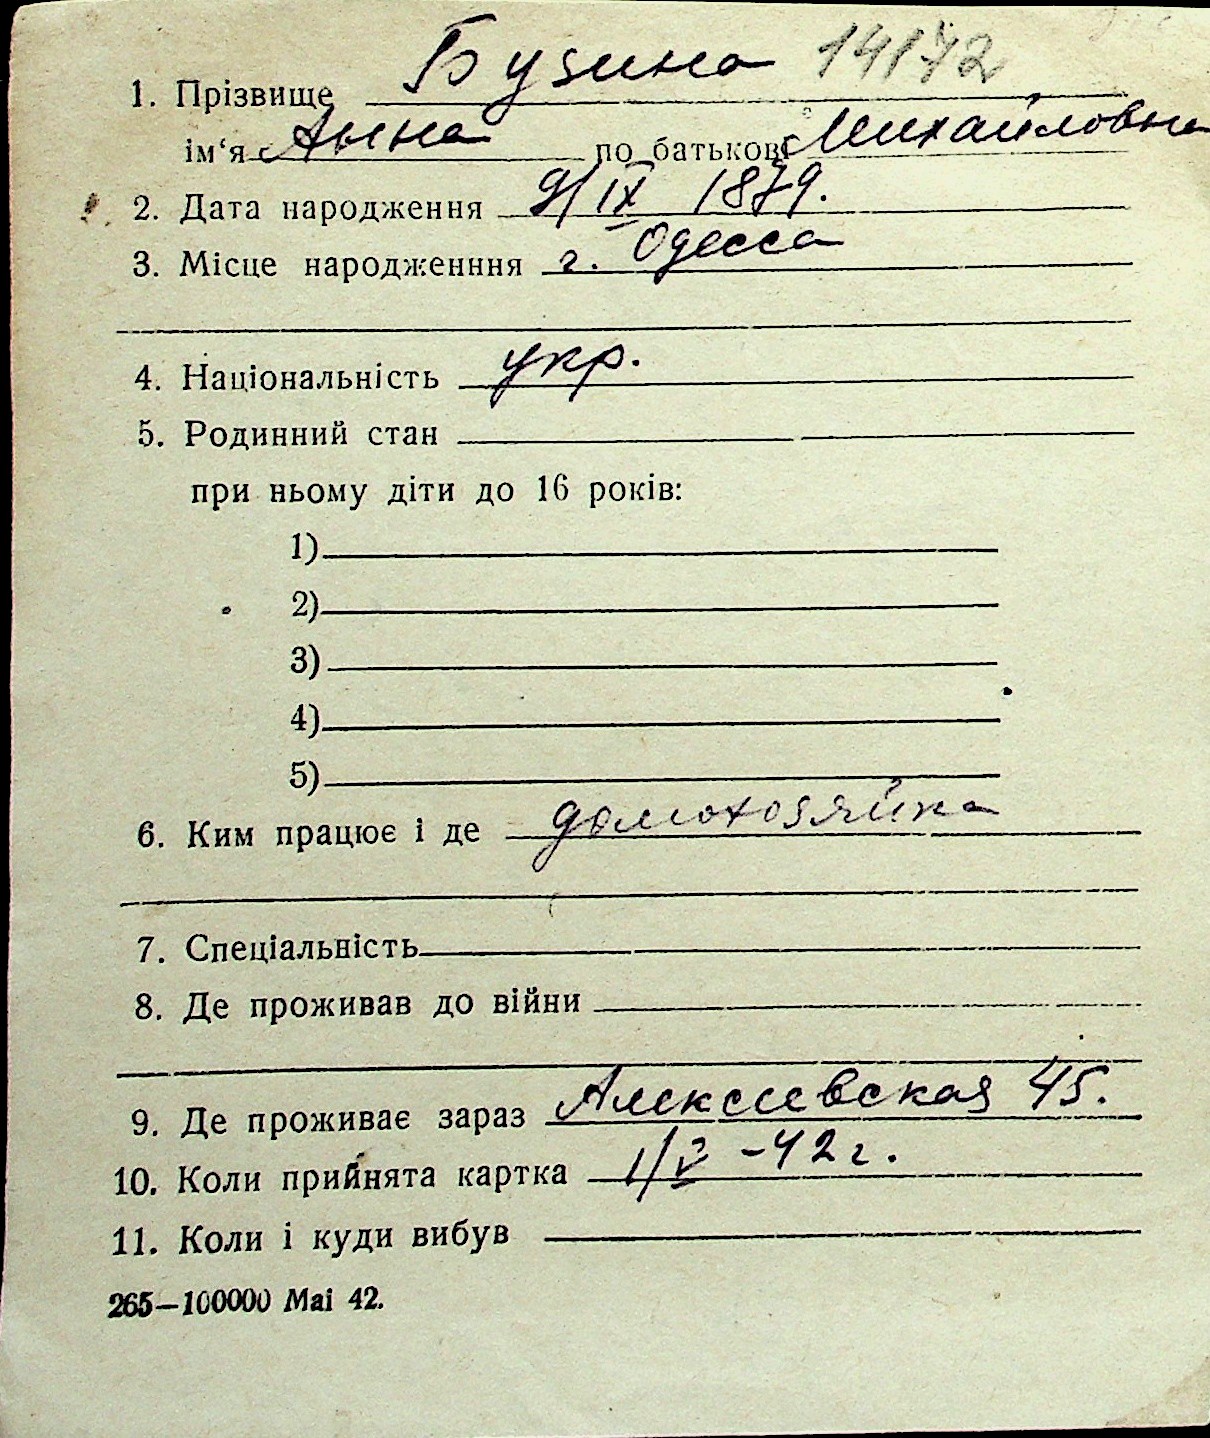 1. Прізвище Бузина 14172
ім‘я Анна по батькові Михайловна
2. Дата народження 9/IX 1879.
3. Місце народженння г. Одесса
4. Національність укр.
5. Родинний стан
при ньому діти до 16 років:
1)
2)
3)
4)
5)
6. Ким працює і де домохозяйка
7. Спеціальність
8. Де проживав до війни
9. Де проживає зараз Алексеевская 45.
10. Коли прийнята картка 1/V -42 г.
11. Коли і куди вибув
265—100000 Mai 42.